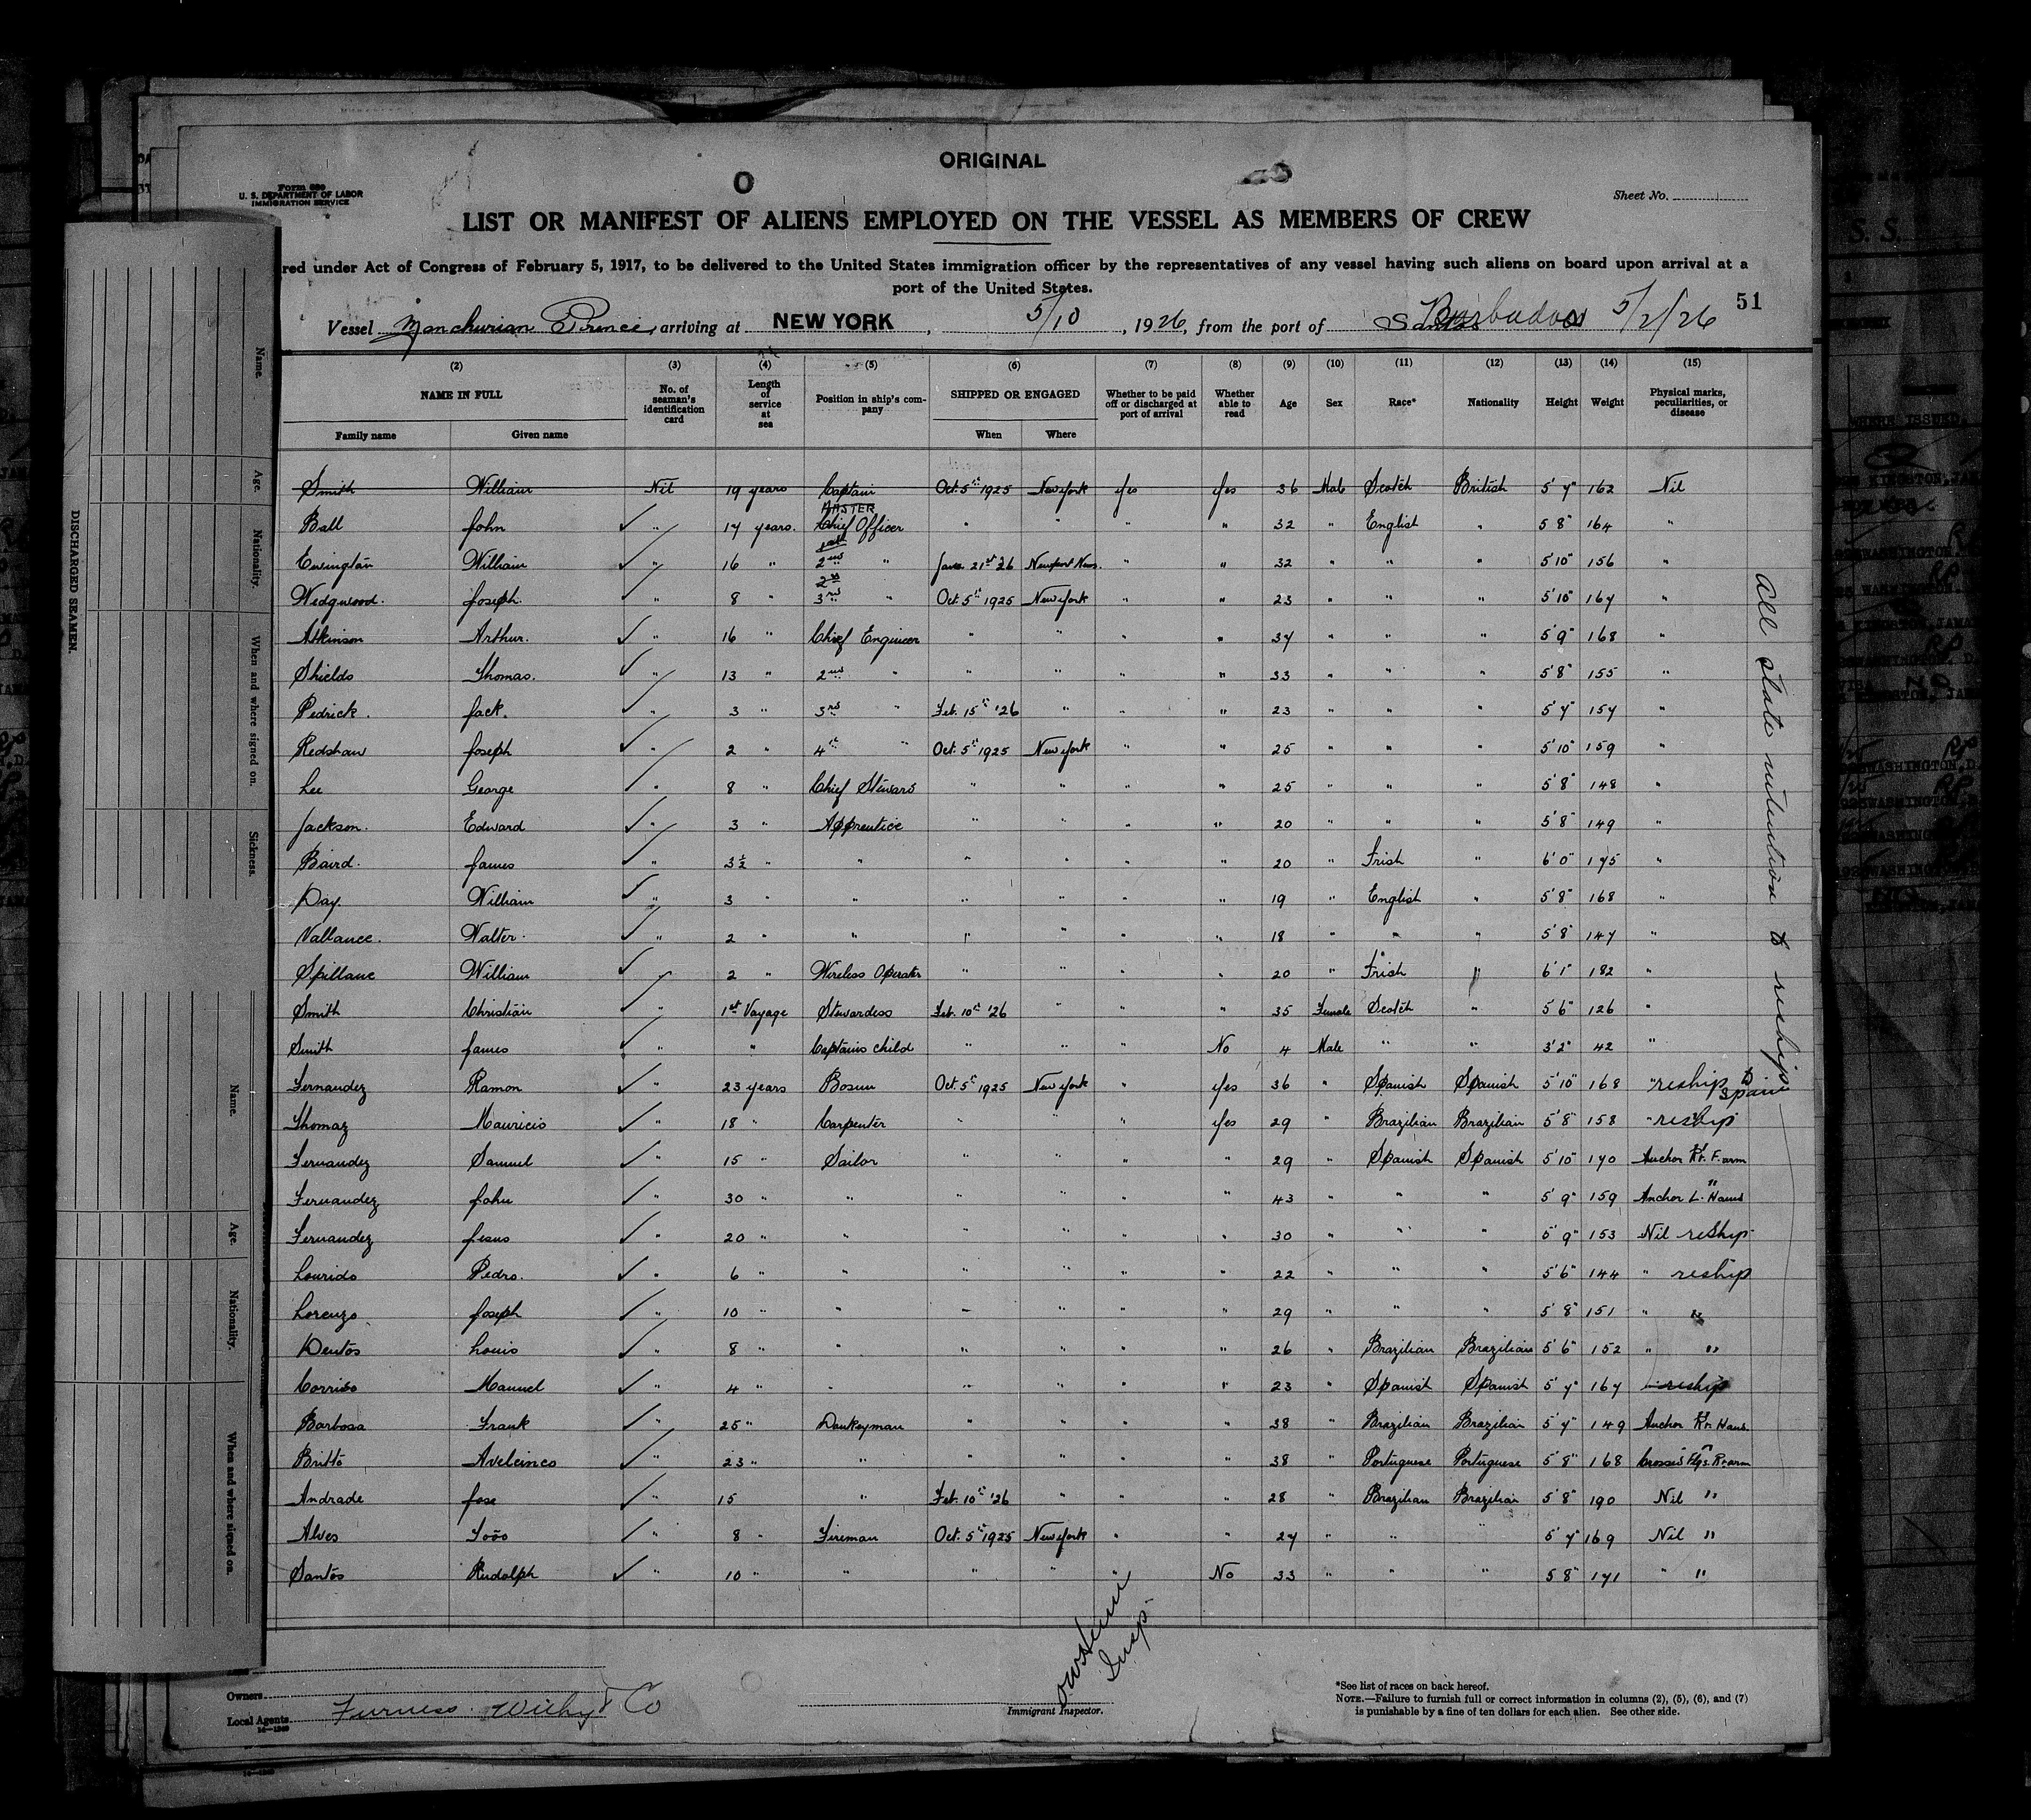 ORIGINAL
O
Form 680
U. S. DEPARTMENT OF LABOR
IMMIGRATION SERVICE
Sheet No.
LIST OR MANIFEST OF ALIENS EMPLOYED ON THE VESSEL AS MEMBERS OF CREW
red under Act of Congress of February 5, 1917, to be delivered to the United States immigration officer by the representatives of any vessel having such aliens on board upon arrival at a
port of the United States.
51
Vessel Manchurian Prince, arriving at NEW YORK, 5/10, 1926, from the port of Barbados 5/2/26
(2) (3) (4) (5) (6) (7) (8) (9) (10) (11) (12) (13) (14) (15)
NAME IN FULL No. of seaman's identification card Length of service at sea Position in ship's company SHIPPED OR ENGAGED Whether to be paid off or discharged at port of arrival Whether able to read Age Sex Race* Nationality Height Weight Physical marks, peculiarities, or disease
Family name Given name When Where
Smith William Nil 19 years Captain Oct. 5th 1925 New York Yes Yes 36 Male Scotch British 5' 7" 162 Nil
Ball John ✓ " 17 years. MASTER Chief Officer " " " " 32 " English " 5 8" 164 "
Ewington William ✓ " 16 " 2nd " Jan. 21st 26 Newport News. " " 32 " " " 5'10" 156 "
Wedgwood. Joseph. ✓ " 8 " 2nd 3rd " Oct. 5th 1925 New York " " 23 " " " 5'10" 167 "
Atkinson Arthur. ✓ " 16 " Chief Engineer " " " " 37 " " " 5'9" 168 "
Shields Thomas. ✓ " 13 " 2nd " " " " " 33 " " " 5'8" 155 "
Pedrick. Jack. ✓ " 3 " 3rd " Feb. 15th '26 " " " 23 " " " 5'7" 157 "
Redshaw Joseph ✓ " 2 " 4th " Oct. 5th 1925 New York " " 25 " " " 5'10" 159 "
Lee George ✓ " 8 " Chief Steward " " " " 25 " " " 5'8" 148 "
Jackson. Edward ✓ " 3 " Apprentice " " " " 20 " " " 5'8" 149 "
Baird. James ✓ " 3½ " " " " " " 20 " Irish " 6'0" 175 "
Day. William ✓ " 3 " " " " " " 19 " English " 5'8" 168 "
Vallance. Walter. ✓ " 2 " " " " " " 18 " " " 5'8" 147 "
Spillane William ✓ " 2 " Wireless Operator " " " " 20 " Irish " 6'1" 182 "
Smith Christian ✓ " 1st Voyage Stewardess Feb. 10th '26 " " " 35 Female Scotch " 5'6" 126 "
Smith James ✓ " " Captains child " " " No 4 Male " " 3'2" 42 "
Fernandez Ramon ✓ " 23 years Bosun Oct. 5th 1925 New York " Yes 36 " Spanish Spanish 5'10" 168 " reship to Spain
Thomaz Mauricio ✓ " 18 " Carpenter " " " Yes 29 " Brazilian Brazilian 5'8" 158 " reship
Fernandez Samuel ✓ " 15 " Sailor " " " " 29 " Spanish Spanish 5'10" 170 Anchor Rt. F. arm
Fernandez John ✓ " 30 " " " " " " 43 " " " 5'9" 159 Anchor L. Hand
Fernandez Jesus ✓ " 20 " " " " " " 30 " " " 5'9" 153 Nil reship
Lourido Pedro. ✓ " 6 " " " " " " 22 " " " 5'6" 144 " reship
Lorenzo Joseph ✓ " 10 " " " " " " 29 " " " 5'8" 151 " "
Dentos Louis ✓ " 8 " " " " " " 26 " Brazilian Brazilian 5'6" 152 " "
Corribo Manuel ✓ " 4 " " " " " " 23 " Spanish Spanish 5'7" 167 " reship
Barbosa Frank ✓ " 25 " Donkeyman " " " " 38 " Brazilian Brazilian 5'7" 149 Anchor Rt. Hand.
Britto Aveleinco ✓ " 23 " " " " " " 38 " Portuguese Portuguese 5'8" 168 Crossed Flgs. Rt arm
Andrade Jose ✓ " 15 " Feb. 10th '26 " " " 28 " Brazilian Brazilian 5'8" 190 Nil "
Alves João ✓ " 8 " Fireman Oct. 5th 1925 New York " " 27 " " " 5'7" 169 Nil "
Santos Rudolph ✓ " 10 " " " " " No 33 " " " 5 8" 171 " "
All state intention to reship
DISCHARGED SEAMEN.
Name.
Age.
Nationality.
When and where signed on.
Sickness.
Name.
Age.
Nationality.
When and where signed on.
Insp.
Immigrant Inspector.
Owners
Local Agents Furness Withy & Co
*See list of races on back hereof.
NOTE.—Failure to furnish full or correct information in columns (2), (5), (6), and (7)
is punishable by a fine of ten dollars for each alien. See other side.